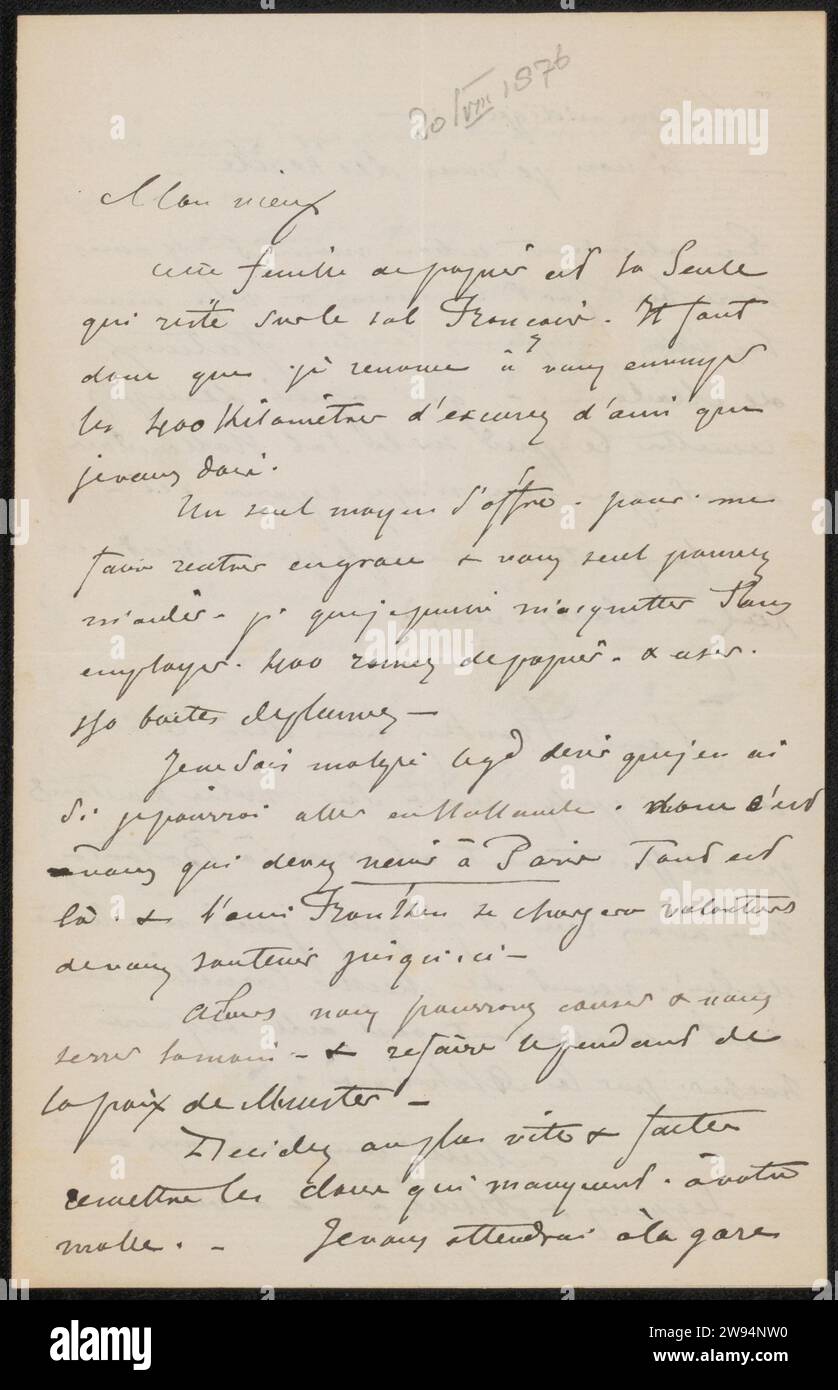 20/VIII 1876
Mon vieux
cette feuille de papier est la seule
qui reste sur le sol Francais. Il faut
donc que je renonce à vous envoyer
les 400 Kilomètres d'excuses d'ami que
je vous dois.
Un seul moyen s'offre. pour. me
faire rentrer en grace & vous seul pouvez
m'aider. que je puisse m'acquitter sans
employer. 400 rames de papier. & user.
boites de plumes —
Je ne sais malgré le gd desir que j'en ai
Si je pourrai aller en Hollande. donc c'est
vous qui devez venir à Paris Tout est
là. & l'ami se chargera volontiers
de vous soutenir jusqu'ici —
Alors nous pourrons causer & nous
serrer la main — & refaire le pendant de
la paix de Munster —
Decidez au plus vite & faites
remettre les clous qui manquent. à votre
malle. — Je vous attendrai à la gare
alamy
alamy
Image ID: 2W94NW0
www.alamy.com